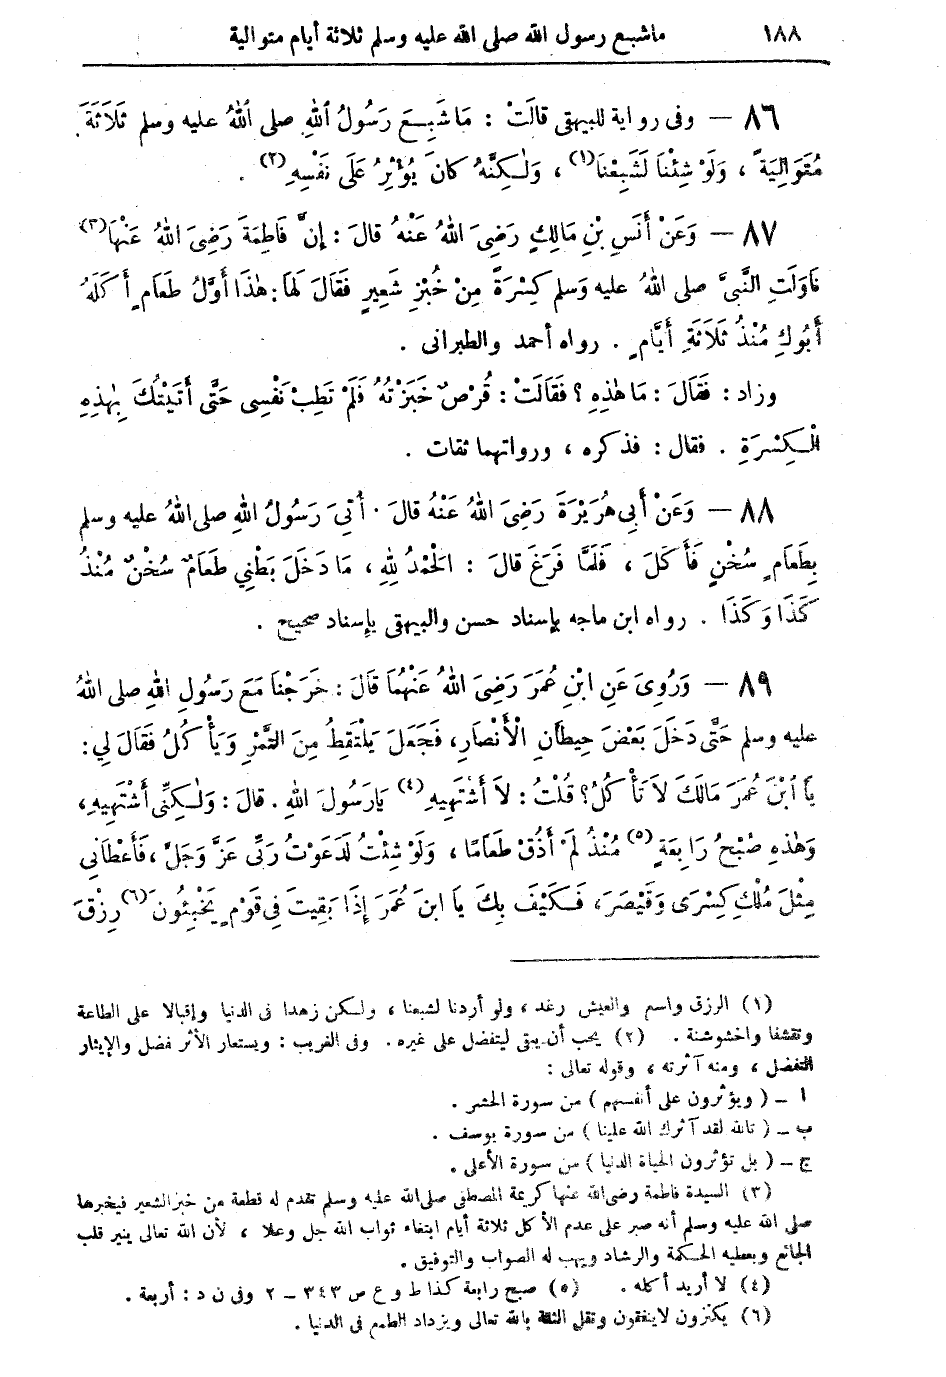 ١٨٨ ماشبع رسول الله صلى الله عليه وسلم ثلاثة أيام متوالية
٨٦ — وفى رواية للبيهقى قالَتْ : مَاشَبِـعَ رَسُولُ ٱللهِ صلى ٱللهُ عليه وسلم ثَلَاثَةً
مُتَوَالِيَةً ، وَلَوْ شِئْنَا لَشَبِعْنَا(١) ، وَلٰـكِنَّهُ كانَ يُؤْثِرُ عَلَى نَفْسِهِ(٢) .
٨٧ — وَعَنْ أَنَسِ بْنِ مَالِكٍ رَضِىَ اللهُ عَنْهُ قالَ : إِنَّ فَاطِمَةَ رَضِىَ اللهُ عَنْهَا(٣)
نَاوَلَتِ النَّبىَّ صلى اللهُ عليه وَسلم كِسْرَةً مِنْ خُبْزِ شَعِيرٍ فَقَالَ لَهَا: هٰذَا أَوَّلُ طَعَامٍ أَكَلَهُ
أَبُوكِ مُنْذُ ثَلَاثَةِ أَيَّامٍ . رواه أحمد والطبرانى .
وزاد : فَقَالَ : مَا هٰذِهِ ؟ فَقَالَتْ : قُرْصٌ خَبَزْتُهُ فَلَمْ تَطِبْ نَفْسِى حَتَّى أَتَيْتُكَ بِهٰذِهِ
الْـكِسْرَةِ . فقال : فذكره ، ورواتهما ثقات .
٨٨ — وَعَنْ أَبِى هُرَيْرَةَ رَضِىَ اللهُ عَنْهُ قالَ . أُتِىَ رَسُولُ اللهِ صلى اللهُ عليه وسلم
بِطَعَامٍ سُخْنٍ فَأَكَلَ ، فَلَمَّا فَرَغَ قالَ : الْحَمْدُ لِلهِ ، مَا دَخَلَ بَطْنِي طَعَامٌ سُخْنٌ مُنْذُ
كَذَا وَكَذَا . رواه ابن ماجه بإسناد حسن والبيهقى بإسناد صحيح .
٨٩ — وَرُوِىَ عَنِ ابْنِ عُمَرَ رَضِىَ اللهُ عَنْهُمَا قَالَ : خَرَجْنَا مَعَ رَسُولِ اللهِ صلى اللهُ
عليه وسلم حَتَّى دَخَلَ بَعْضَ حِيطَانِ الْأَنْصَارِ، فَجَعَلَ يَلْتَقِطُ مِنَ التَّمْرِ وَيَأْكُلُ فَقَالَ لِي :
يَا ٱبْنَ عُمَرَ مَالَكَ لَا تَأْكُلُ؟ قُلْتُ : لَا أَشْتَهِيهِ(٤) يَارَسُولَ اللهِ . قالَ : وَلٰـكِنِّى أَشْتَهِيهِ ،
وَهٰذِهِ صُبْحُ رَابِعَةٍ(٥) مُنْذُ لَمْ أَذُقْ طَعَامًا ، وَلَوْ شِئْتُ لَدَعَوْتُ رَبِّى عَزَّ وَجَلَّ ، فَأَعْطَانِى
مِثْلَ مُلْكِ كِسْرَى وَقَيْصَرَ ، فَـكَيْفَ بِكَ يَا ابنَ عُمَرَ إِذَا بَقِيتَ فِى قَوْمٍ يَخْبِئُونَ(٦) رِزْقَ
(١) الرزق واسم والعيش رغد ، ولو أردنا لشبعنا ، ولـكن زهدا فى الدنيا وإقبالا على الطاعة
وتقشفا واخشوشنة . (٢) يحب أن يبقى ليتفضل على غيره . وفى الغريب : ويستعار الأثر فضل والإيثار
التفضل ، ومنه آثرته ، وقوله تعالى :
ا — ( ويؤثرون على أنفسهم ) من سورة الحشر .
ب — ( تالله لقد آثرك الله علينا ) من سورة يوسف .
ج — ( بل تؤثرون الحياة الدنيا ) من سورة الأعلى .
(٣) السيدة فاطمة رضى الله عنها كريمة المصطفى صلى الله عليه وسلم تقدم له قطعة من خبز الشعير فيخبرها
صلى الله عليه وسلم أنه صبر على عدم الأكل ثلاثة أيام ابتغاء ثواب الله جل وعلا ، لأن الله تعالى ينير قلب
الجائع ويعطيه الحـكمة والرشاد ويهب له الصواب والتوفيق .
(٤) لا أريد أكله . (٥) صبح رابعة كذا ط و ع ص ٣٤٣ — ٢ وفى ن د : أربعة .
(٦) يكنزون لا ينفقون وتقل الثقة بالله تعالى ويزداد الطمع فى الدنيا .